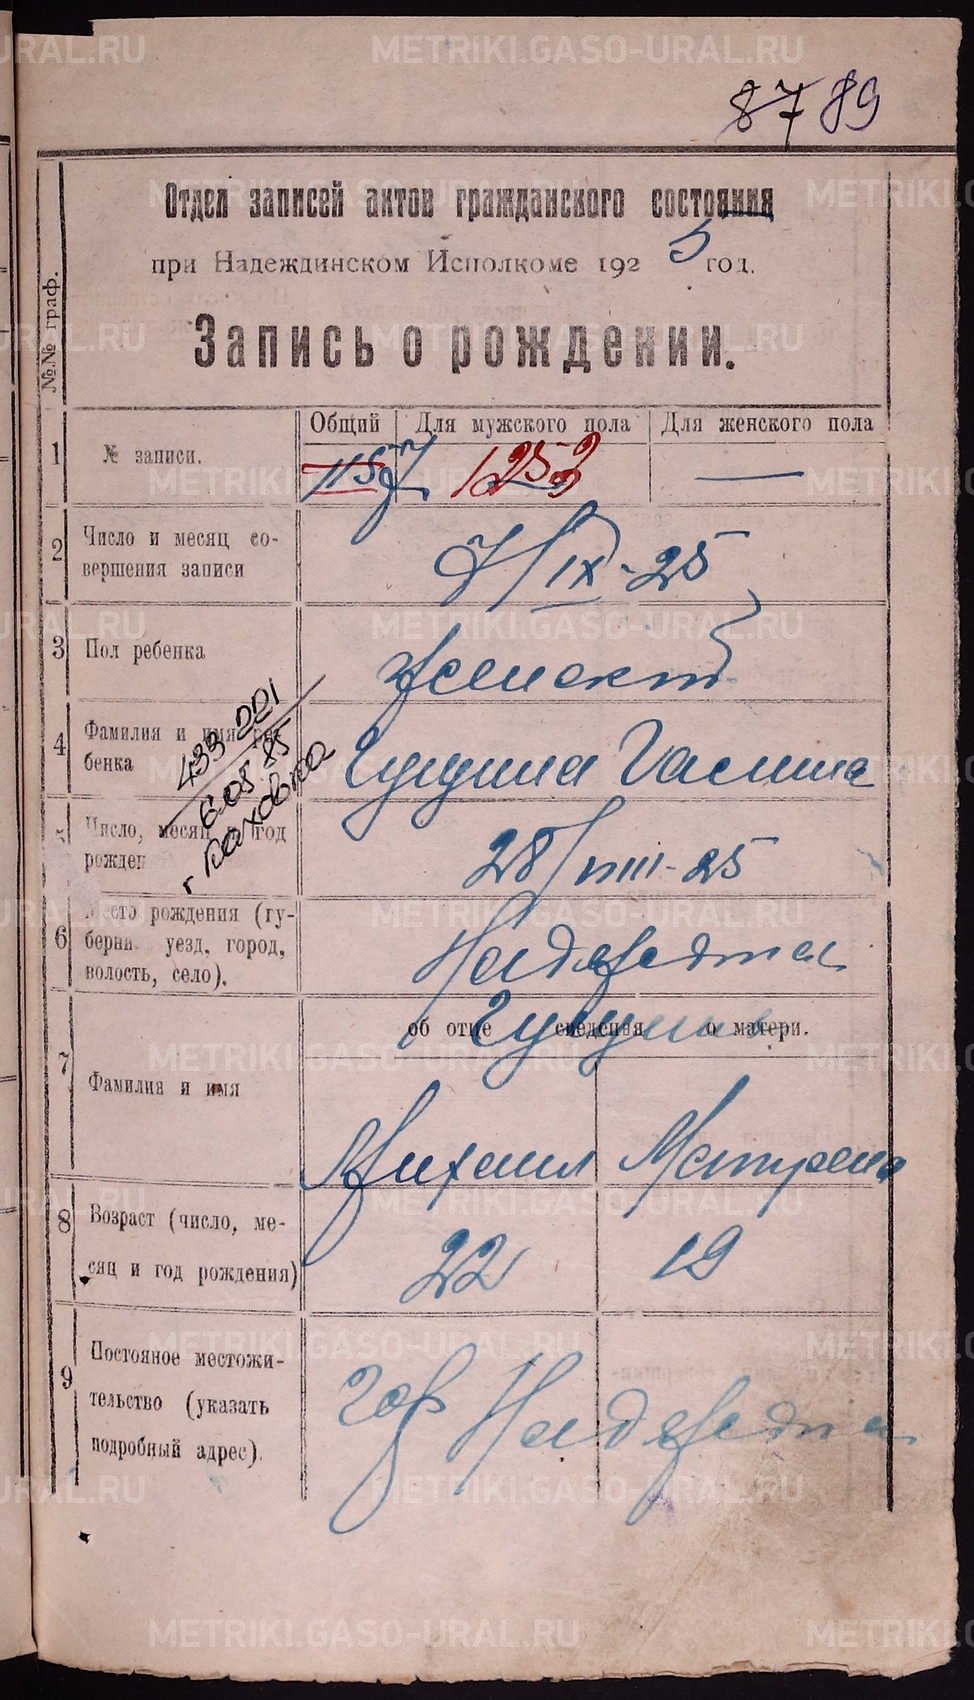 87 89
Отдел записей актов гражданского состояния
при Надеждинском Исполкоме 1925 год.
Запись о рождении.
№№ граф.
Общий Для мужского пола Для женского пола
1 № записи. 1157 1253 —
2 Число и месяц со-
вершения записи
7/IX-25
3 Пол ребенка
женский
4 Фамилия и имя ре-
бенка
Галина
433-221
6.08.85
5 Число, месяц год
рожден
28/VIII-25
6 Место рождения (гу-
берни уезд, город,
волость, село).
Надежда
об отце сведения о матери.
7 Фамилия и имя
Михаил Матрена
8 Возраст (число, ме-
сяц и год рождения)
22 19
9 Постояное местожи-
тельство (указать
подробный адрес).
гор Надежда
METRIKI.GASO-URAL.RU